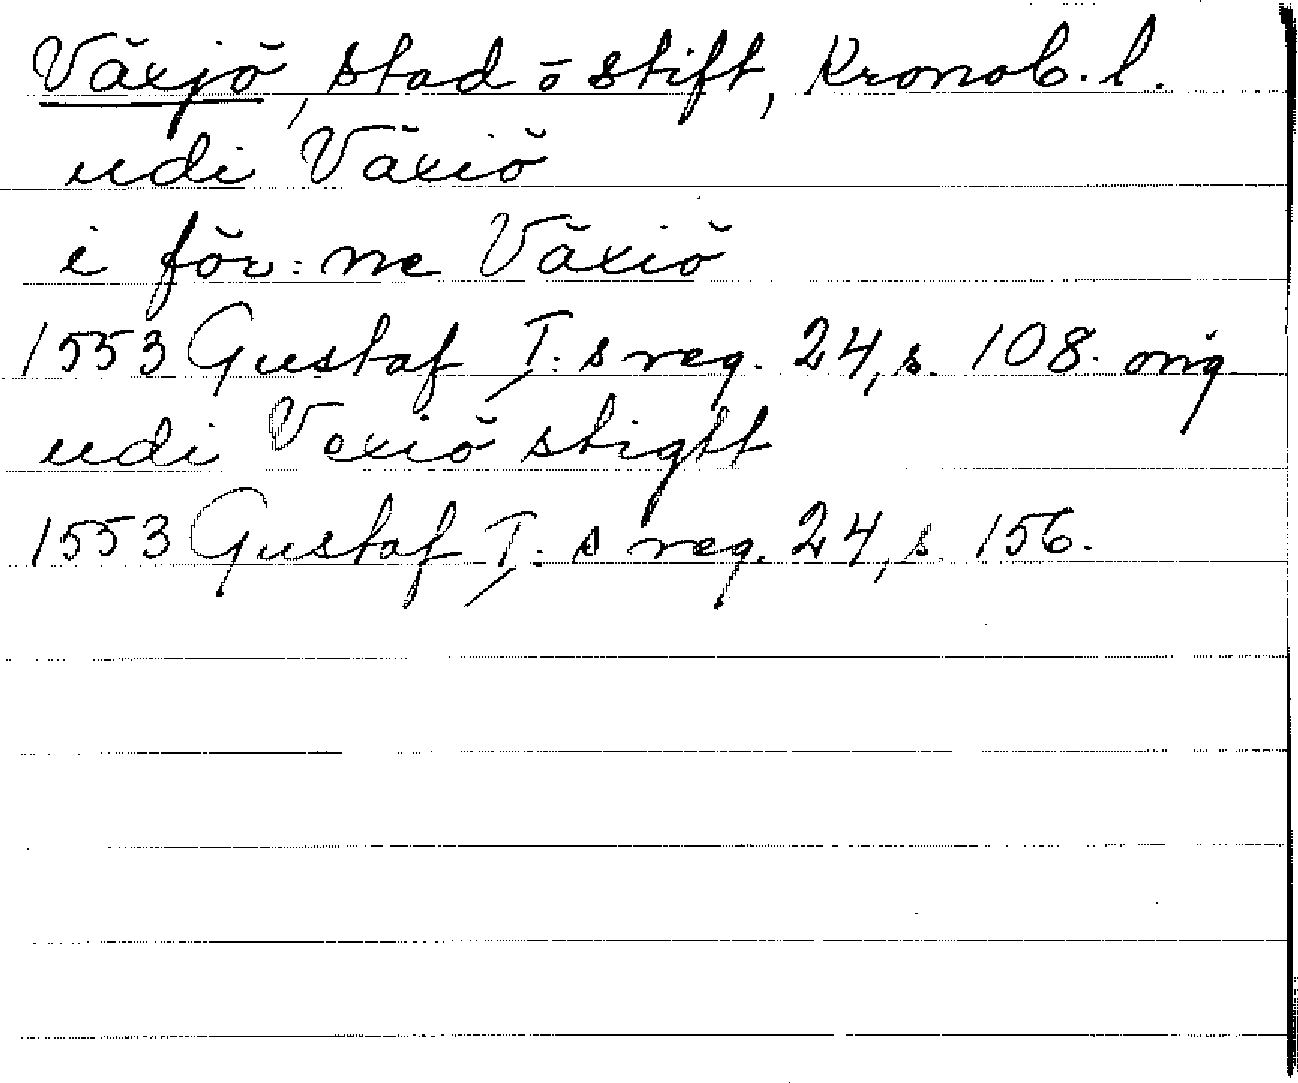 Växjö, stad o stift, Kronob. l.
udi Växiö
i för:ne Växiö
1553 Gustaf I:s reg. 24, s. 108. orig
udi Vexiö stigtt
1553 Gustaf I:s reg. 24, s. 156.